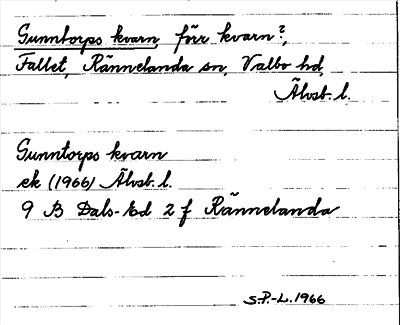 Gunntorps kvarn, förr kvarn?,
Fallet, Rännelanda sn, Valbo hd,
Älvsb. l.
Gunntorps kvarn
ek (1966) Älvsb. l.
9 B Dals-Ed 2 f Rännelanda
S.P.-L. 1966